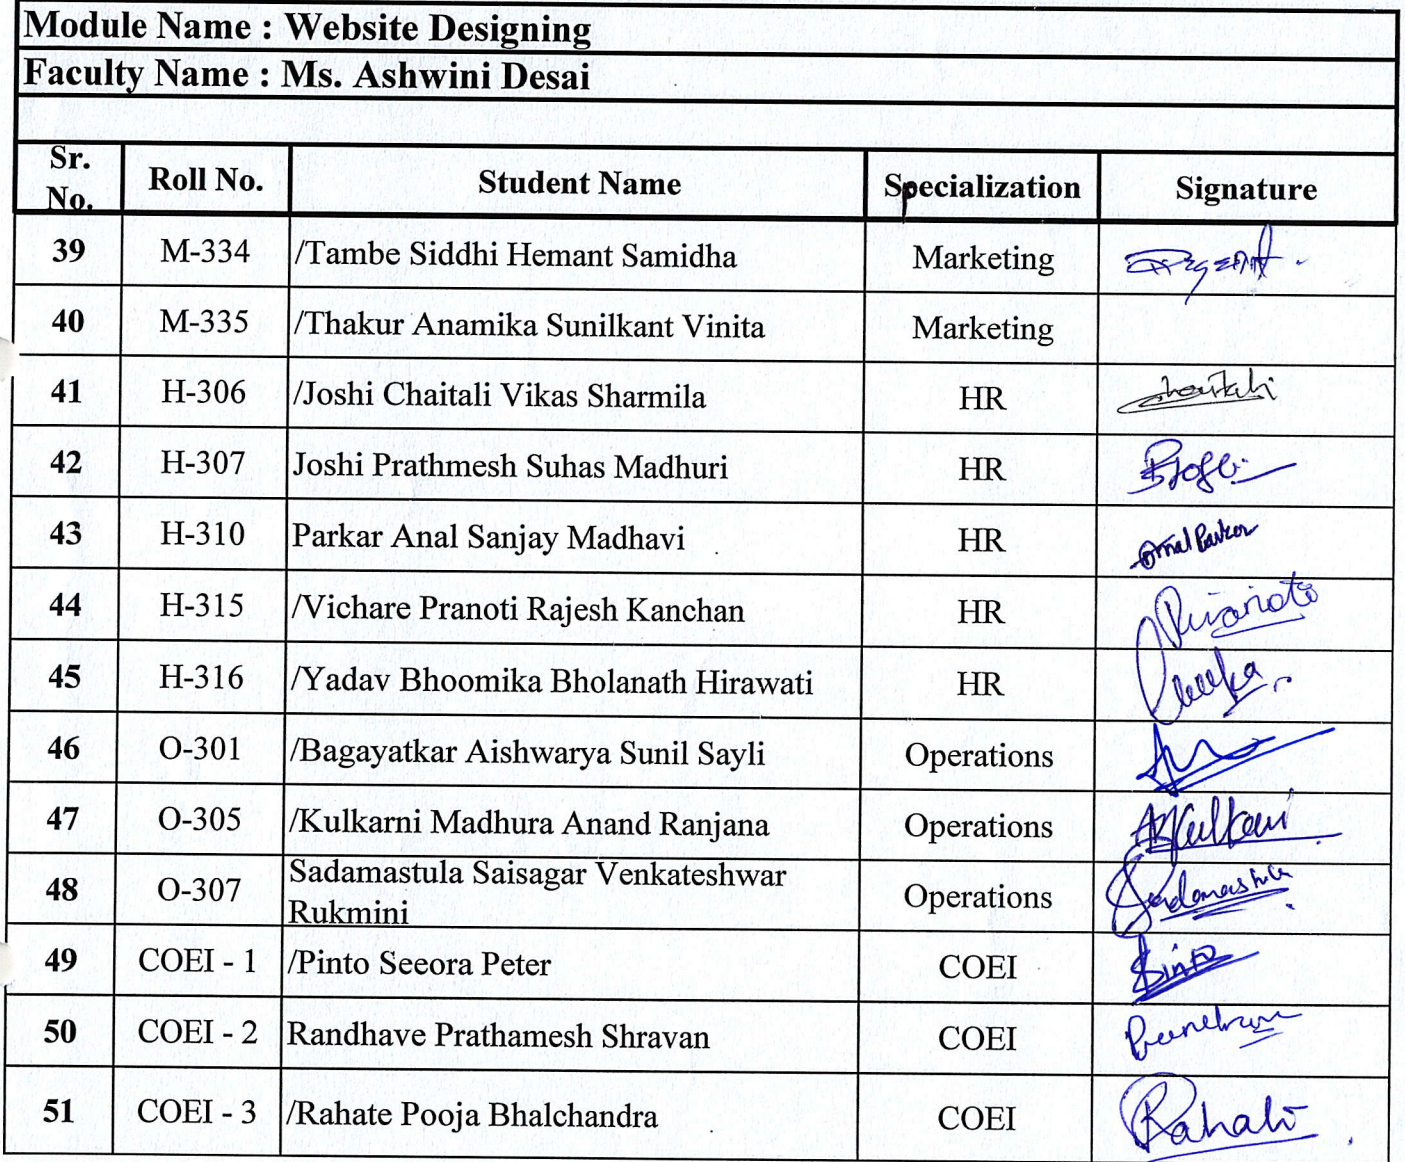 Module Name : Website Designing
Faculty Name : Ms. Ashwini Desai
Sr. No. Roll No. Student Name Specialization Signature
39 M-334 /Tambe Siddhi Hemant Samidha Marketing
40 M-335 /Thakur Anamika Sunilkant Vinita Marketing
41 H-306 /Joshi Chaitali Vikas Sharmila HR Chaitali
42 H-307 Joshi Prathmesh Suhas Madhuri HR
43 H-310 Parkar Anal Sanjay Madhavi HR Anal Parkar
44 H-315 /Vichare Pranoti Rajesh Kanchan HR Pranoti
45 H-316 /Yadav Bhoomika Bholanath Hirawati HR
46 O-301 /Bagayatkar Aishwarya Sunil Sayli Operations
47 O-305 /Kulkarni Madhura Anand Ranjana Operations
48 O-307 Sadamastula Saisagar Venkateshwar
Rukmini Operations Sadamastula
49 COEI - 1 /Pinto Seeora Peter COEI Pinto
50 COEI - 2 Randhave Prathamesh Shravan COEI
51 COEI - 3 /Rahate Pooja Bhalchandra COEI Rahate